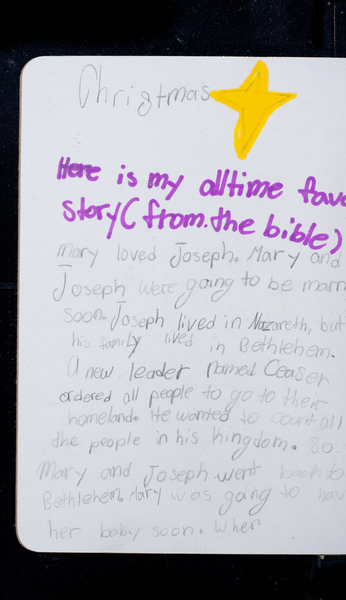 Christmas
Here is my alltime favo
story( from.the bible)
Mary loved Joseph. Mary and
Joseph were going to be marr
soon. Joseph lived in Nazareth, but
his family lived in Bethlehem.
A new leader named Ceaser
ordered all people to go to their
homeland. He wanted to count all
the people in his kingdom. So
Mary and Joseph went back to
Bethlehem. Mary was going to hav
her baby soon. When